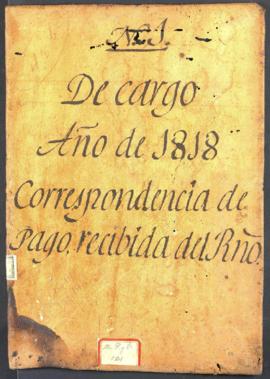 De cargo
Año de 1818
Correspondencia de
Pago. recibida del Rño.